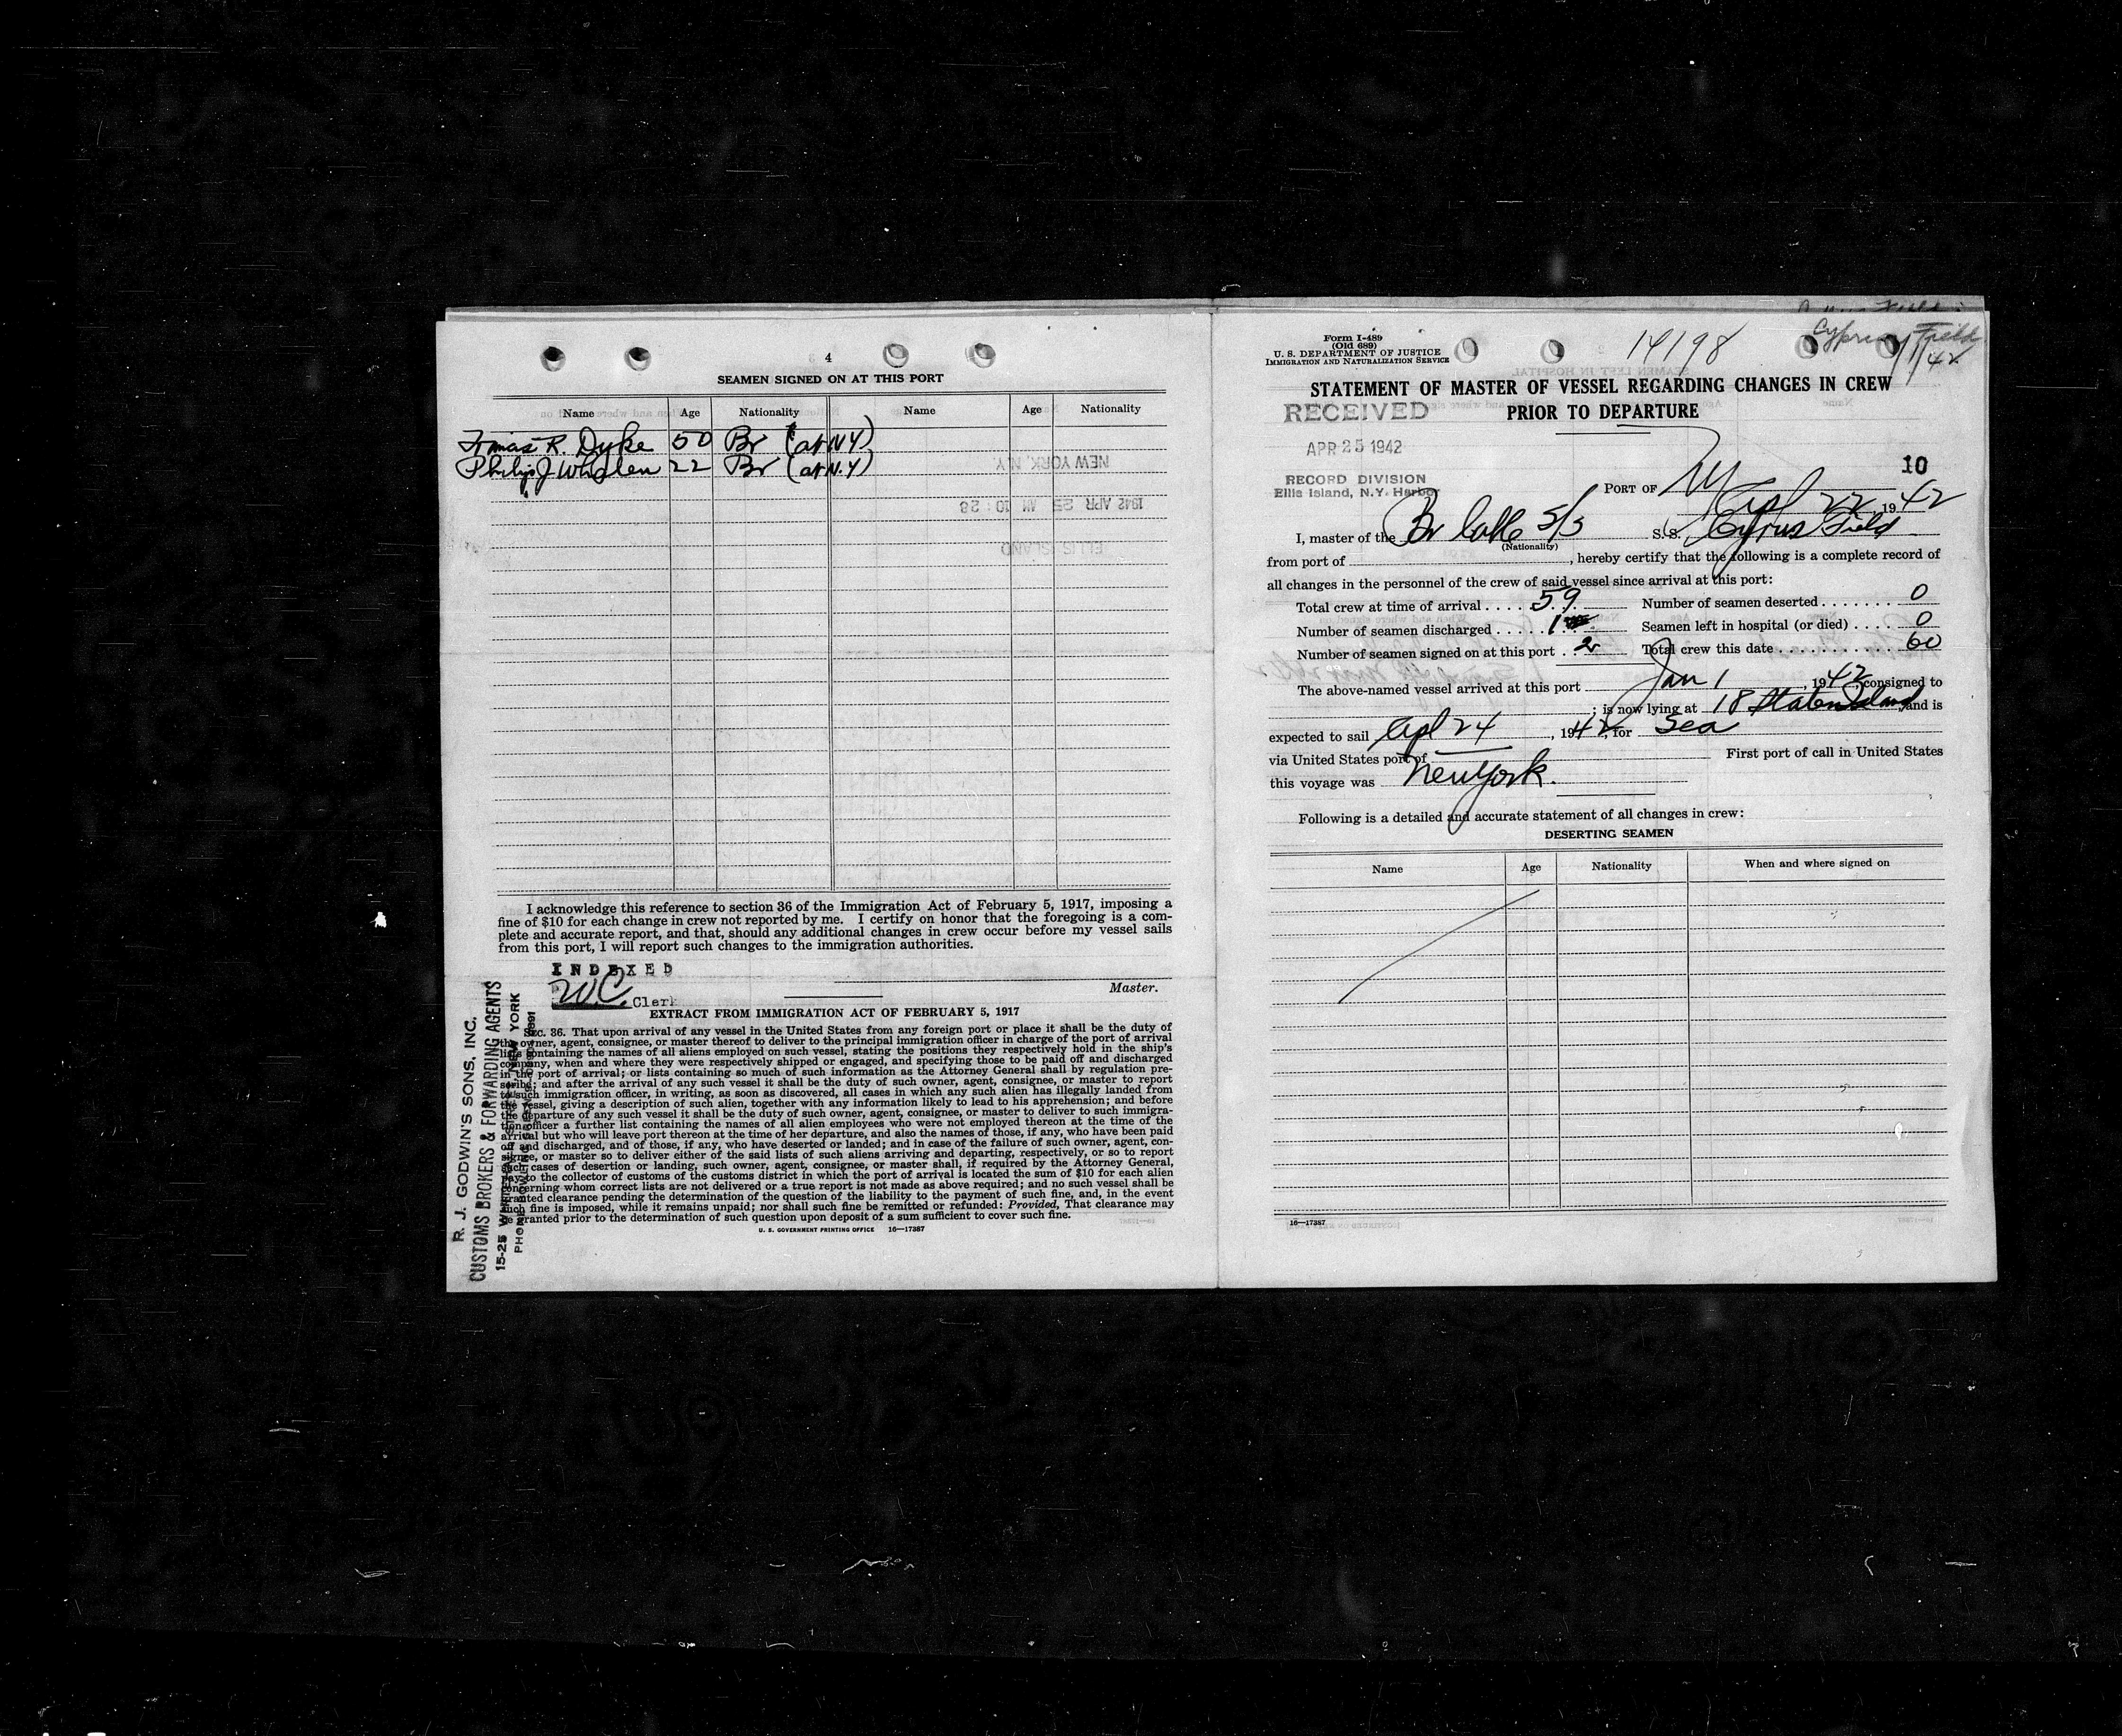 4
SEAMEN SIGNED ON AT THIS PORT
Name Age Nationality Name Age Nationality
R. Dyke 50 Br (at N.Y)
Philip J Whalen 22 Br (at N.Y)
NEW YORK, N.Y.
1942 APR 25 AM 10:28
ELLIS ISLAND
I acknowledge this reference to section 36 of the Immigration Act of February 5, 1917, imposing a
fine of $10 for each change in crew not reported by me. I certify on honor that the foregoing is a com-
plete and accurate report, and that, should any additional changes in crew occur before my vessel sails
from this port, I will report such changes to the immigration authorities.
INDEXED
WC Clerk
Master.
EXTRACT FROM IMMIGRATION ACT OF FEBRUARY 5, 1917
Sec. 36. That upon arrival of any vessel in the United States from any foreign port or place it shall be the duty of
the owner, agent, consignee, or master thereof to deliver to the principal immigration officer in charge of the port of arrival
lists containing the names of all aliens employed on such vessel, stating the positions they respectively hold in the ship's
company, when and where they were respectively shipped or engaged, and specifying those to be paid off and discharged
in the port of arrival; or lists containing so much of such information as the Attorney General shall by regulation pre-
scribe; and after the arrival of any such vessel it shall be the duty of such owner, agent, consignee, or master to report
to such immigration officer, in writing, as soon as discovered, all cases in which any such alien has illegally landed from
the vessel, giving a description of such alien, together with any information likely to lead to his apprehension; and before
the departure of any such vessel it shall be the duty of such owner, agent, consignee, or master to deliver to such immigra-
tion officer a further list containing the names of all alien employees who were not employed thereon at the time of the
arrival but who will leave port thereon at the time of her departure, and also the names of those, if any, who have been paid
off and discharged, and of those, if any, who have deserted or landed; and in case of the failure of such owner, agent, con-
signee, or master so to deliver either of the said lists of such aliens arriving and departing, respectively, or so to report
such cases of desertion or landing, such owner, agent, consignee, or master shall, if required by the Attorney General,
pay to the collector of customs of the customs district in which the port of arrival is located the sum of $10 for each alien
concerning whom correct lists are not delivered or a true report is not made as above required; and no such vessel shall be
granted clearance pending the determination of the question of the liability to the payment of such fine, and, in the event
such fine is imposed, while it remains unpaid; nor shall such fine be remitted or refunded: Provided, That clearance may
be granted prior to the determination of such question upon deposit of a sum sufficient to cover such fine.
U. S. GOVERNMENT PRINTING OFFICE 16—17387
R. J. GODWIN'S SONS, INC.
CUSTOMS BROKERS & FORWARDING AGENTS
15-25 NEW YORK
Form I-489
(Old 689)
U. S. DEPARTMENT OF JUSTICE
IMMIGRATION AND NATURALIZATION SERVICE
14198
Cyprus Field
1/1/42
STATEMENT OF MASTER OF VESSEL REGARDING CHANGES IN CREW
PRIOR TO DEPARTURE
RECEIVED
APR 25 1942
RECORD DIVISION
Ellis Island, N.Y. Harbor
10
PORT OF NY
Apl 22, 1942
I, master of the Br Cable S/S S. S. Cyrus Field
(Nationality)
from port of , hereby certify that the following is a complete record of
all changes in the personnel of the crew of said vessel since arrival at this port:
Total crew at time of arrival .... 59 Number of seamen deserted ....... 0
Number of seamen discharged ..... 1 Seamen left in hospital (or died) .... 0
Number of seamen signed on at this port .. 2 Total crew this date ............ 60
The above-named vessel arrived at this port Jan 1, 1942, consigned to
; is now lying at 18 Staten Island, and is
expected to sail Apl 24, 1942, for Sea
via United States port of First port of call in United States
this voyage was New York.
Following is a detailed and accurate statement of all changes in crew:
DESERTING SEAMEN
Name Age Nationality When and where signed on
16—17387